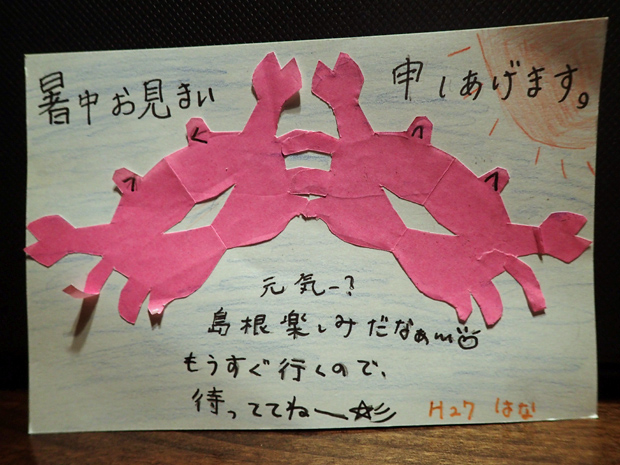 暑中お見まい 申しあげます。
元気ー?
島根楽しみだなぁm
もうすぐ行くので、
待っててねー☆彡
H27 はな